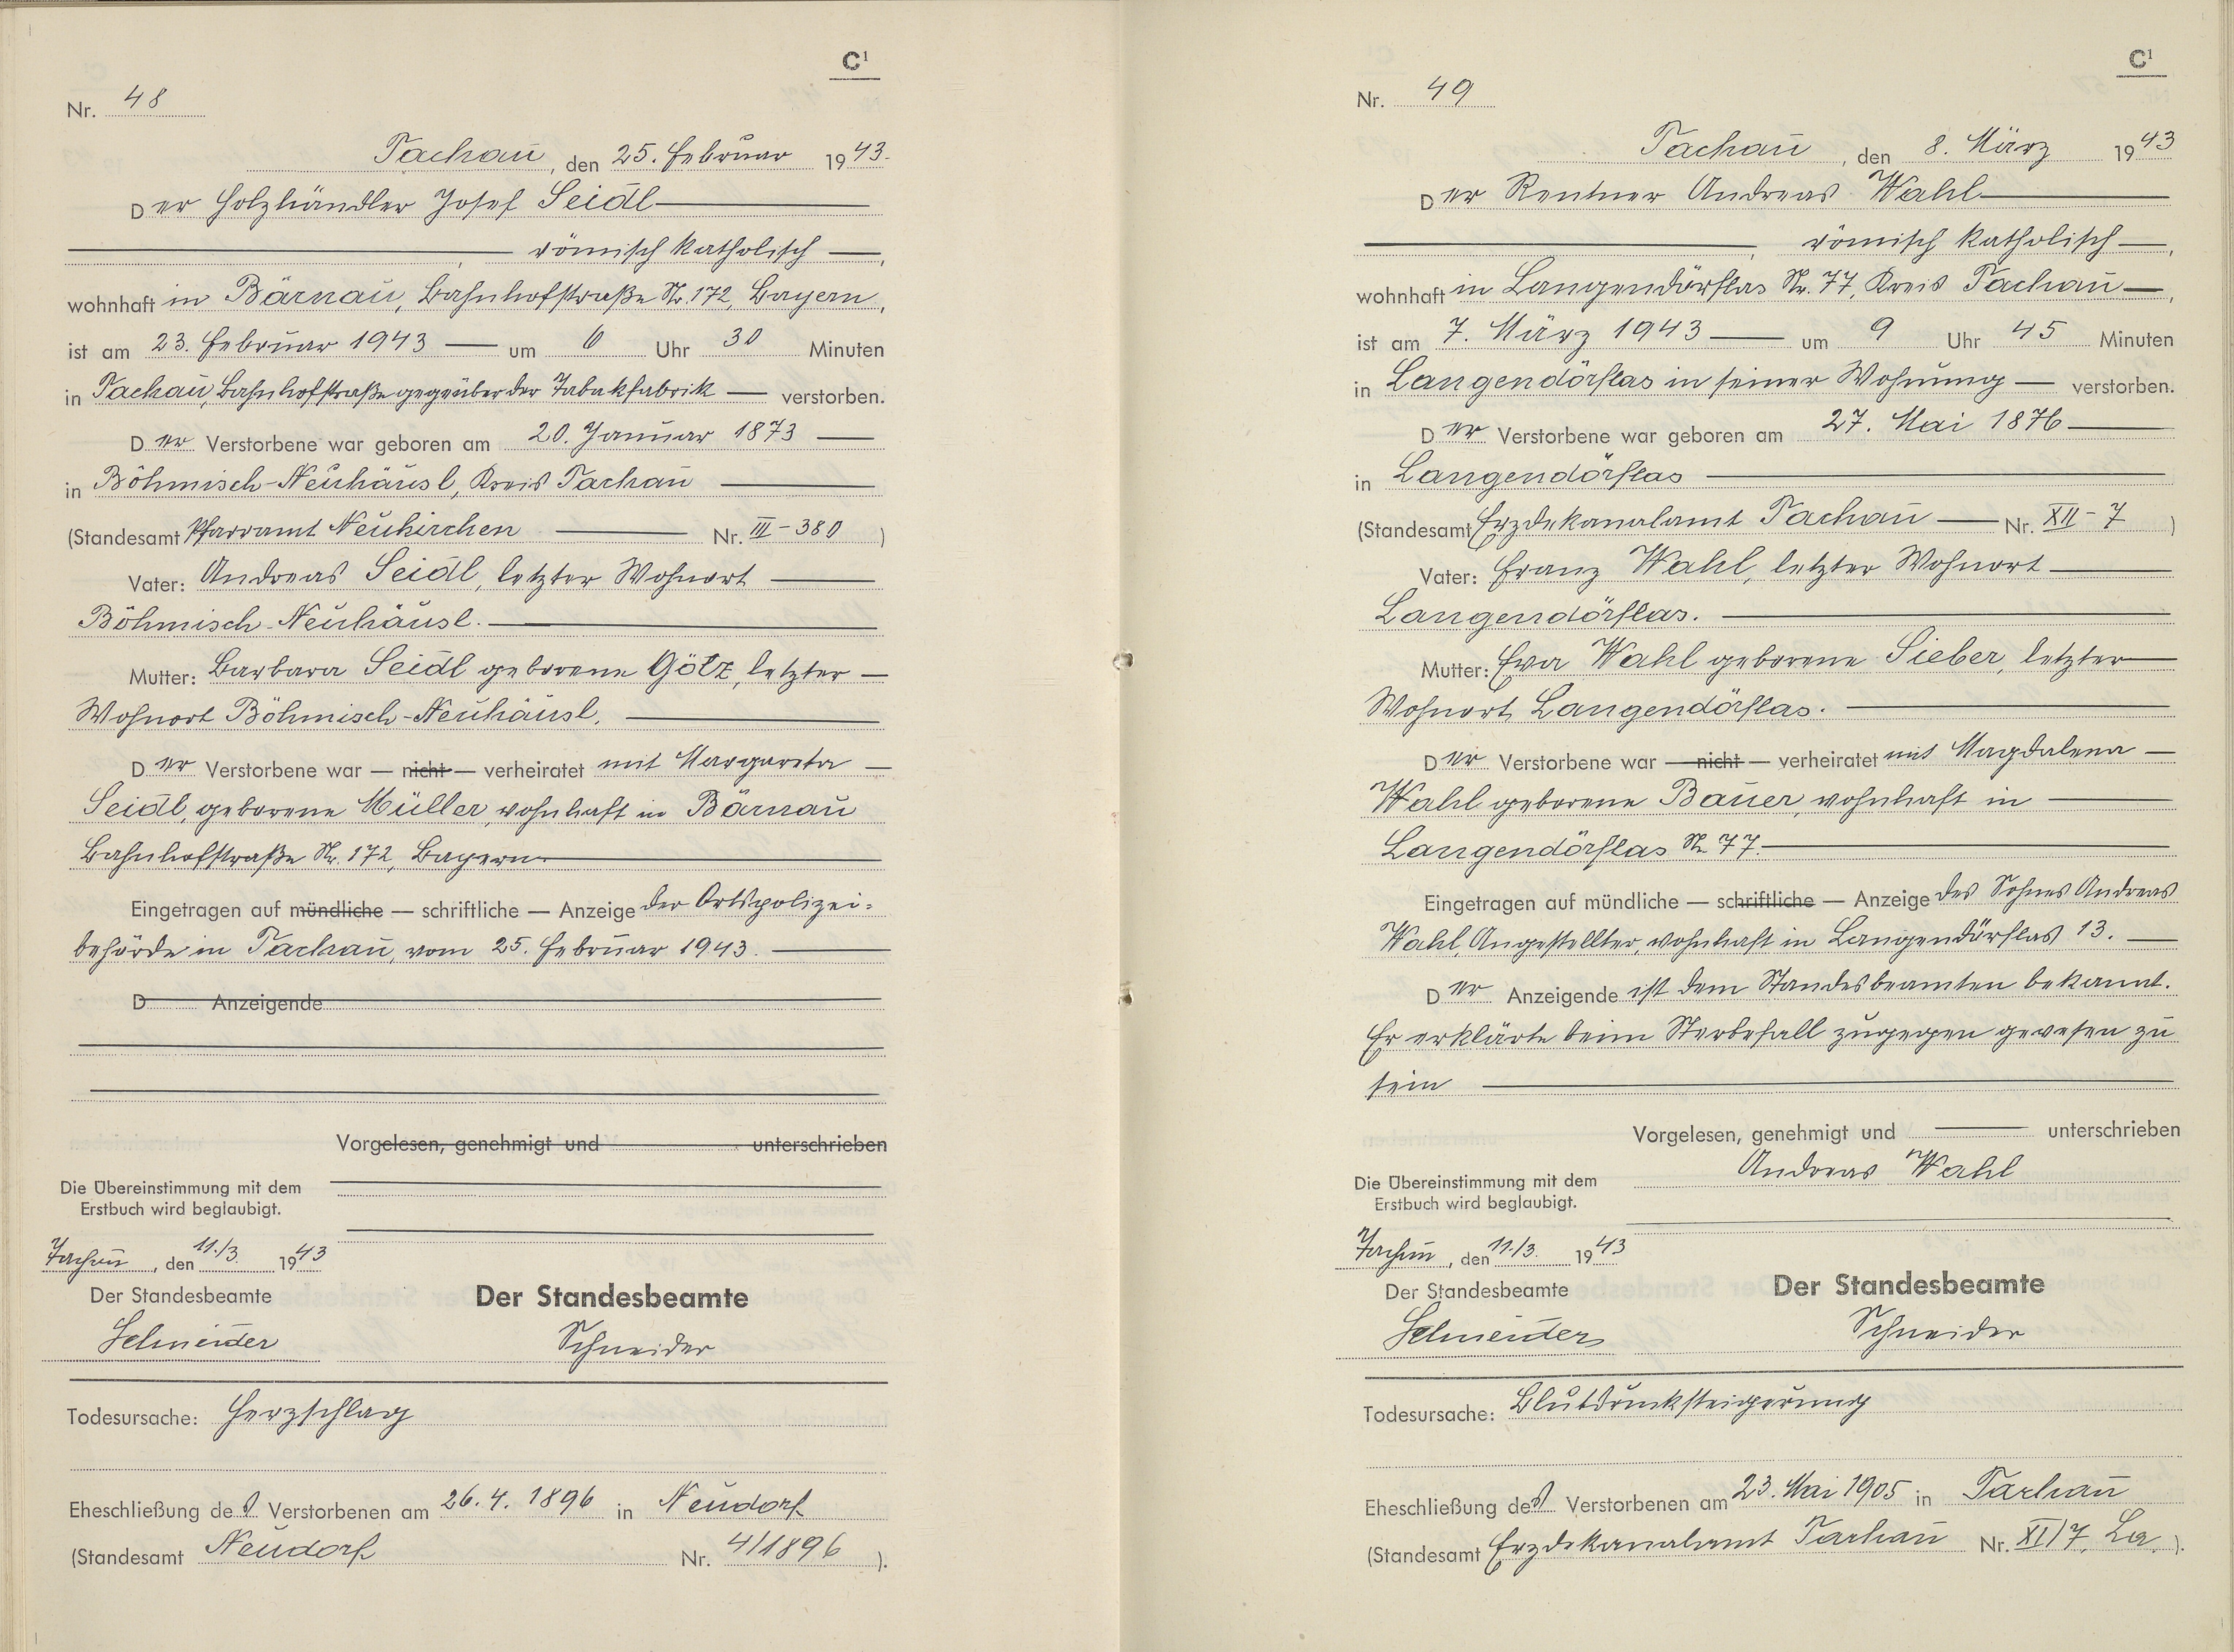 C¹
Nr. 48
Tachau, den 25. Februar 1943.
Der Holzhändler Josef Seidl
römisch katholisch,
wohnhaft in Bärnau, Bahnhofstraße Nr. 172, Bayern,
ist am 23. Februar 1943 um 6 Uhr 30 Minuten
in Tachau, Bahnhofstraße gegenüber der Tabakfabrik verstorben.
Der Verstorbene war geboren am 20. Januar 1873
in Böhmisch-Neuhäusl, Kreis Tachau
(Standesamt Pfarramt Neukirchen Nr. III-380)
Vater: Andreas Seidl, letzter Wohnort
Böhmisch-Neuhäusl.
Mutter: Barbara Seidl geborene Götz, letzter
Wohnort Böhmisch-Neuhäusl.
Der Verstorbene war — nicht — verheiratet mit Margareta
Seidl, geborene Müller, wohnhaft in Bärnau
Bahnhofstraße Nr. 172, Bayern.
Eingetragen auf mündliche — schriftliche — Anzeige der Ortspolizei-
behörde in Tachau, vom 25. Februar 1943.
D Anzeigende
Vorgelesen, genehmigt und unterschrieben
Die Übereinstimmung mit dem
Erstbuch wird beglaubigt.
Tachau, den 11./3. 1943
Der Standesbeamte Der Standesbeamte
Schneider Schneider
Todesursache: Herzschlag
Eheschließung des Verstorbenen am 26.4.1896 in Neudorf
(Standesamt Neudorf Nr. 4/1896).
C¹
Nr. 49
Tachau, den 8. März 1943
Der Rentner Andreas Wahl
römisch katholisch,
wohnhaft in Langendörflas Nr. 77, Kreis Tachau,
ist am 7. März 1943 um 9 Uhr 45 Minuten
in Langendörflas in seiner Wohnung verstorben.
Der Verstorbene war geboren am 27. Mai 1876
in Langendörflas
(Standesamt Erzdekanalamt Tachau Nr. XII-7)
Vater: Franz Wahl, letzter Wohnort
Langendörflas.
Mutter: Eva Wahl geborene Sieber, letzter
Wohnort Langendörflas.
Der Verstorbene war — nicht — verheiratet mit Magdalena
Wahl geborene Bauer, wohnhaft in
Langendörflas Nr. 77.
Eingetragen auf mündliche — schriftliche — Anzeige des Sohnes Andreas
Wahl, Angestellter, wohnhaft in Langendörflas 13.
Der Anzeigende ist dem Standesbeamten bekannt.
Er erklärte beim Sterbefall zugegen gewesen zu
sein
Vorgelesen, genehmigt und unterschrieben
Andreas Wahl
Die Übereinstimmung mit dem
Erstbuch wird beglaubigt.
Tachau, den 11./3. 1943
Der Standesbeamte Der Standesbeamte
Schneider Schneider
Todesursache: Blutdrucksteigerung
Eheschließung des Verstorbenen am 23. Mai 1905 in Tachau
(Standesamt Erzdekanalamt Tachau Nr. XI/7, La.).